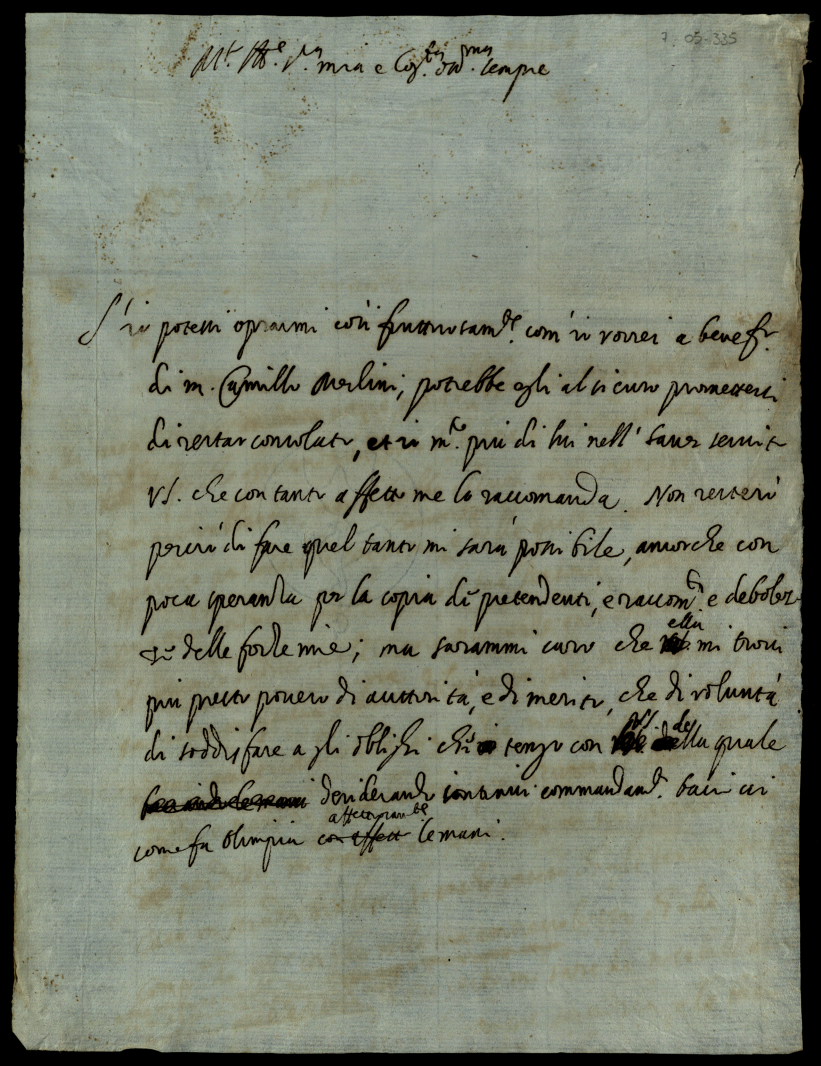 7. 05-335
M.t Ill.e S.ra mia e Cog.ta oss.ma sempre
S'io potessi oprarmi così fruttuosam.te com'io vorrei a benef.o
di m. Camillo Merlini, potrebbe egli al sicuro promettersi
di restar consolato, et io m.to più di lui nell'haver servito
VS. che con tanto affetto me lo raccomanda. Non resterò
perciò di fare quel tanto mi sarà possibile, ancorche con
poca speranza per la copia de pretendenti, e raccom.ti e debolez-
ze delle forze mie; ma sarammi caro che ella mi trovi
più presto povero di auttorità, e di merito, che di voluntà
di soddisfare a gli oblighi ch'io tengo con VS. della quale
desiderando continui commandam.ti bacio
come fa Olimpia con affetto affettuosam.te le mani.